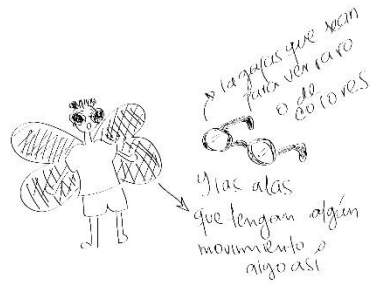 las gafas que sean
para ver raro
o de
colores
y las alas
que tengan algún
movimiento o
algo así